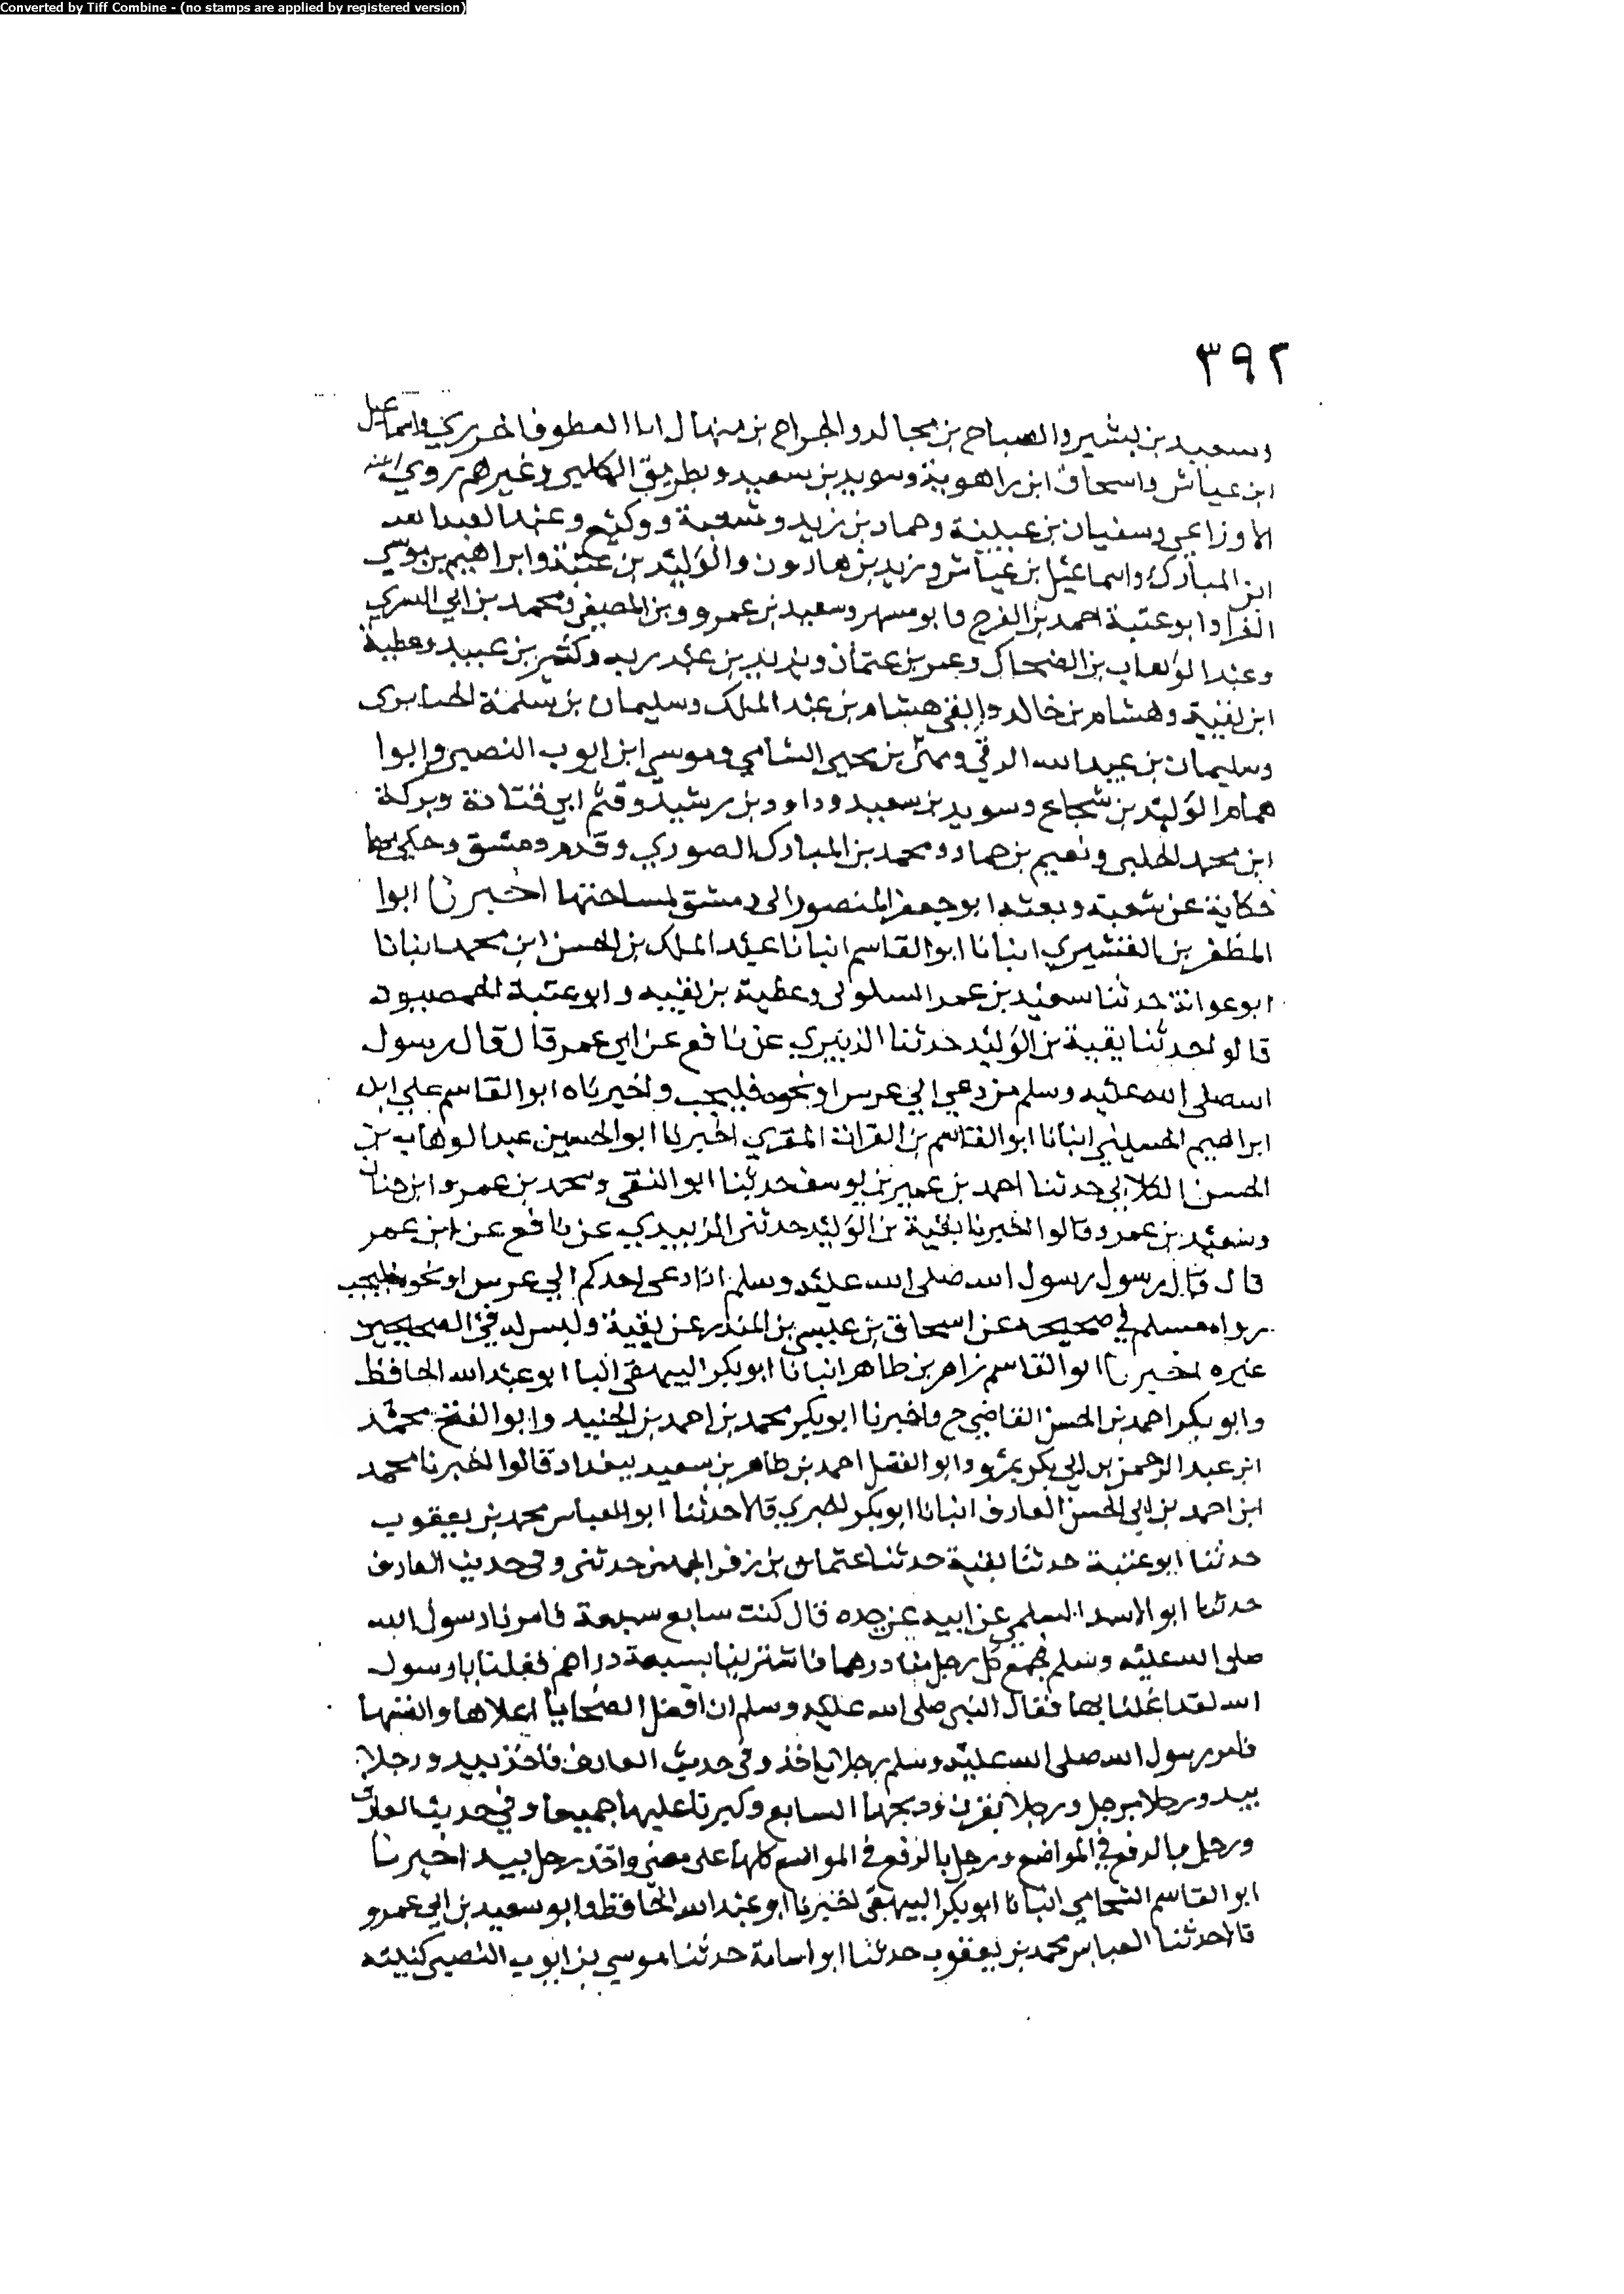 Converted by Tiff Combine - (no stamps are applied by registered version)
٣٩٢
وسعيد بن بشير والصباح بن مجالد والجراح بن منهال ابا العطوف الخرري واسماعيل
ابن عياش واسحاق ابن راهوية وسويد بن سعيد وبطريق الكلبي وغيرهم روي عنه
الاوزاعي وسفيان بن عيينة وحماد بن زيد وشعبة ووكيع وعبد الله
ابن المبارك واسماعيل بن عياش ويزيد بن هارون والوليد بن عتبة وابراهيم بن موسي
الفرا وابو عتبة احمد بن الفرج وابو مسهر وسعيد بن عمرو وبن المصفي ومحمد بن ابي السري
وعبد الوهاب بن الضحاك وعمر بن عثمان ويزيد بن عبد ربه وكثير بن عبيد وعطية
ابن بقية وهشام بن خالد وابو تقي هشام بن عبد الملك وسليمان بن سلمة الخبايري
وسليمان بن عبيد الله الرقي وبن يحيي الشامي وموسي ابن ايوب النصير وابوا
همام الوليد بن شجاع وسويد بن سعيد وداوود بن رشيد وقثم ابي قتادة وبركة
ابن محمد الحلبي ونعيم بن حماد ومحمد بن المبارك الصوري وقدم دمشق وحكي بها
حكاية عن شعبة وبعثه ابو جعفر المنصور الى دمشق لمساحتها اخبرنا ابوا
المظفر بن القشيري انبانا ابو القاسم انبانا عبد الملك بن الحسن ابن محمد انبانا
ابو عوانة حدثنا سعيد بن عمر السلولي وعطية بن بقية وابو عتبة الحمصيون
قالو احدثنا بقية بن الوليد حدثنا الزبيري عن نافع عن ابي عمر قال قال رسول
الله صلى الله عليه وسلم من دعي الي عرس او نحوه فليجب واخبرناه ابوا القاسم علي ابن
ابراهيم الحسيني انبانا ابو القاسم بن الفراتة المقري اخبرنا ابوا الحسين عبد الوهاب بن
الحسن الكلابي حدثنا احمد بن عمير بن يوسف حدثنا ابوا التقي ومحمد بن عمرو ابن حنان
وسعيد بن عمرو قالوا اخبرنا بقية بن الوليد حدثني الزبيدي عن نافع عن ابن عمر
قال قال رسول رسول الله صلى الله عليه وسلم اذا دعى احدكم الي عرس او نحوه فليجب
رواه مسلم في صحيحه عن اسحاق بن عيسى بن المنذر عن بقية وليس له في الصحيحين
غيره اخبرنا ابوا القاسم زاهر بن طاهر انبانا ابو بكر البيهقي انبا ابو عبد الله الحافظ
وابو بكر احمد بن الحسن القاضي ح واخبرنا ابو بكر محمد بن احمد بن الجنيد وابوا الفتح محمد
ابن عبد الرحمن بن ابي بكر بمرو وابوا الفضل احمد بن طاهر بن سعيد ببغداد قالوا اخبرنا محمد
ابن احمد بن ابي الحسن العارف انبانا ابو بكر الحيري قالا حدثنا ابو العباس محمد بن يعقوب
حدثنا ابو عتبة حدثنا بقية حدثنا عثمان بن زفر الجهني حدثني وفي حديث العارف
حدثنا ابو الاسد السلمي عن ابيه عن جده قال كنت سابع سبعة فامرنا رسول الله
صلى الله عليه وسلم فجمع كل رجل منا درهما فاشترينا بسبعة دراهم فقلنا يا رسول
الله لقد اغلينا بها فقال النبي صلى الله عليه وسلم ان افضل الضحايا اغلاها وانفسها
فامر رسول الله صلى الله عليه وسلم رجلا ياخذ وفي حديث العارف فاخذ بيد ورجلا
بيد ورجلا برجل ورجلا بقرن وذبحها السابع وكبرنا عليها جميعا وفي حديث العارف
ورجل بالرفع في المواضع ورجل بالرفع في المواضع كلها على معنى واخذ رجل بيد اخبرنا
ابو القاسم الشحامي انبانا ابو بكر البيهقي اخبرنا ابو عبد الله الحافظ وابو سعيد بن ابي عمرو
قالا حدثنا العباس محمد بن يعقوب حدثنا ابوا اسامة حدثنا موسي بن ايوب النصيبي كتبته